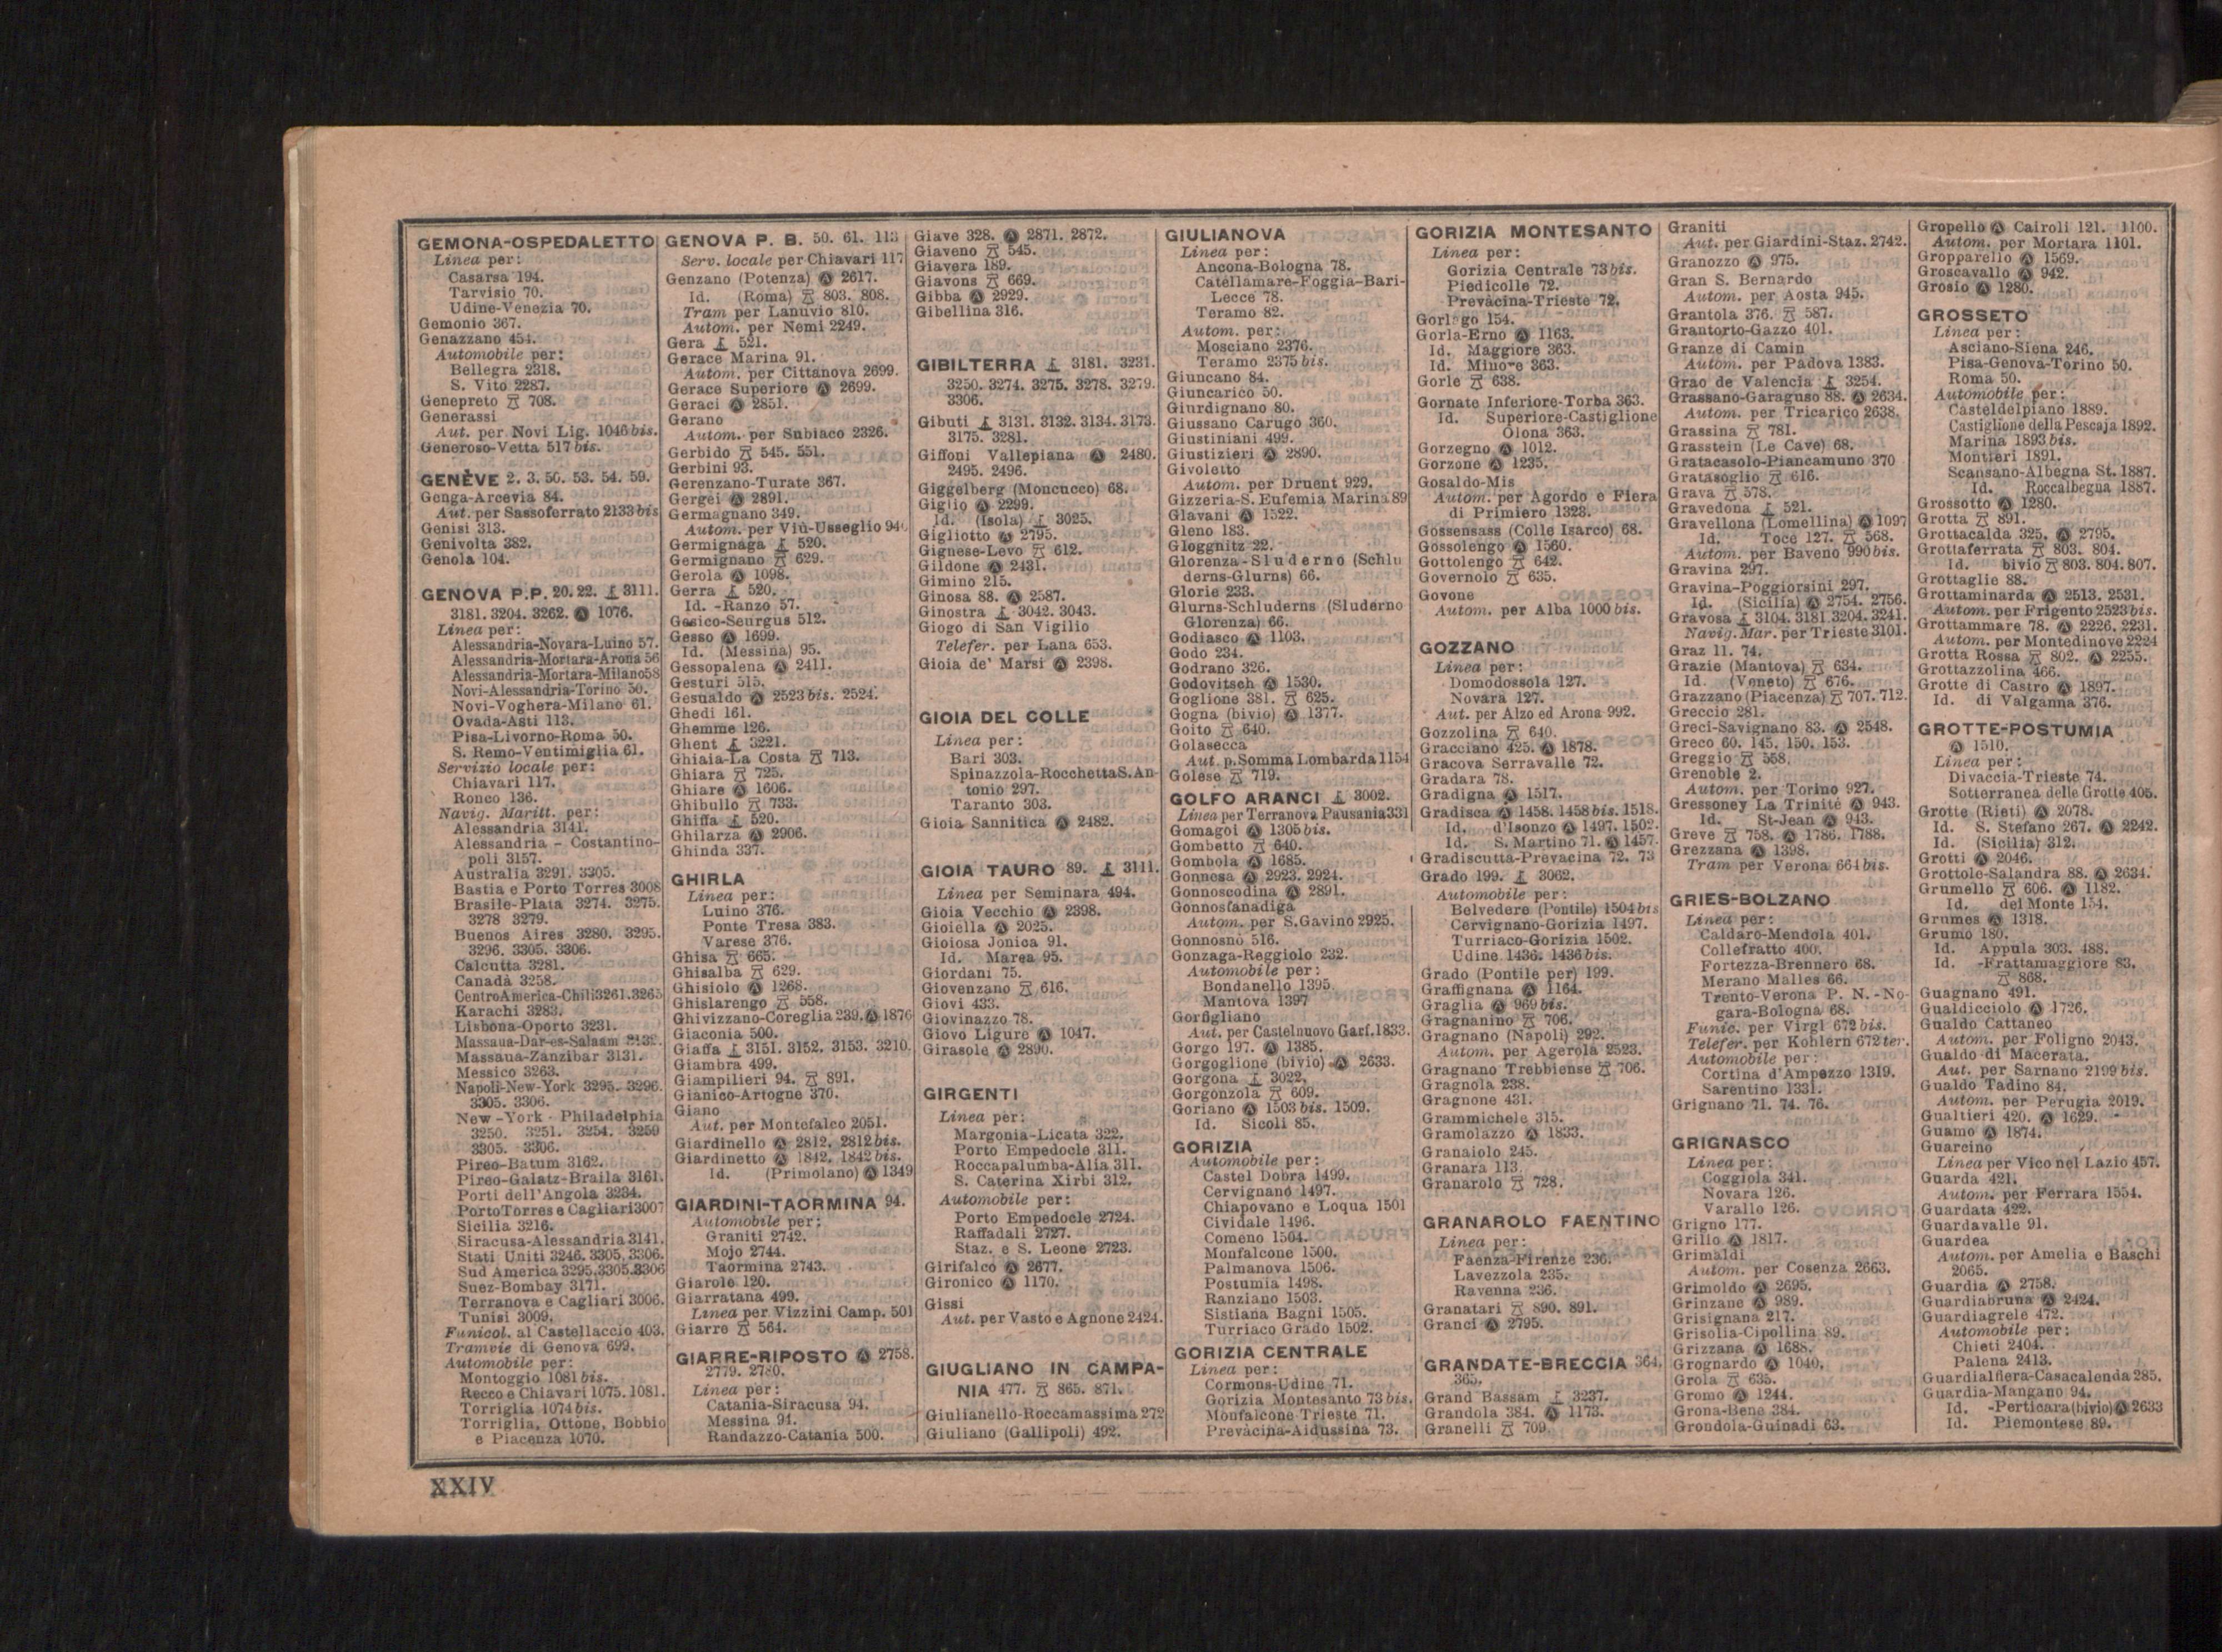 GEMONA-OSPEDALETTO
Linea per:
Casarsa 194.
Tarvisio 70.
Udine-Venezia 70.
Gemonio 367.
Genazzano 454.
Automobile per:
Bellegra 2318.
S. Vito 2287.
Genepreto 708.
Generassi
Aut. per Novi Lig. 1046 bis.
Generoso-Vetta 517 bis.
GENÈVE 2. 3. 50. 53. 54. 59.
Genga-Arcevia 84.
Aut. per Sassoferrato 2133 bis
Genisi 313.
Genivolta 382.
Genola 104.
GENOVA P.P. 20. 22. 3111.
3181. 3204. 3262. Ⓐ 1076.
Linea per:
Alessandria-Novara-Luino 57.
Alessandria-Mortara-Arona 56
Alessandria-Mortara-Milano 58
Novi-Alessandria-Torino 50.
Novi-Voghera-Milano 61.
Ovada-Asti 113.
Pisa-Livorno-Roma 50.
S. Remo-Ventimiglia 61.
Servizio locale per:
Chiavari 117.
Ronco 136.
Navig. Maritt. per:
Alessandria 3141.
Alessandria - Costantino-
poli 3157.
Australia 3291. 3305.
Bastia e Porto Torres 3008
Brasile-Plata 3274. 3275.
3278 3279.
Buenos Aires 3280. 3295.
3296. 3305. 3306.
Calcutta 3281.
Canadà 3258.
CentroAmerica-Chilì 3261. 3265
Karachi 3283.
Lisbona-Oporto 3231.
Massaua-Dar-es-Salaam
Massaua-Zanzibar 3131.
Messico 3263.
Napoli-New-York 3295. 3296.
3305. 3306.
New-York - Philadelphia
3250. 3251. 3254. 3259
3305. 3306.
Pireo-Batum 3162.
Pireo-Galatz-Braila 3161.
Porti dell'Angola 3234.
Porto Torres e Cagliari 3007
Sicilia 3216.
Siracusa-Alessandria 3141.
Stati Uniti 3246. 3305. 3306.
Sud America 3295. 3305. 3306
Suez-Bombay 3171.
Terranova e Cagliari 3006.
Tunisi 3009.
Funicol. al Castellaccio 403.
Tramvie di Genova 699.
Automobile per:
Montoggio 1081 bis.
Recco e Chiavari 1075. 1081.
Torriglia 1074 bis.
Torriglia, Ottone, Bobbio
e Piacenza 1070.
GENOVA P. B. 50. 61. 113
Serv. locale per Chiavari 117
Genzano (Potenza) Ⓐ 2617.
Id. (Roma) 803. 808.
Tram per Lanuvio 810.
Autom. per Nemi 2249.
Gera 521.
Gerace Marina 91.
Autom. per Cittanova 2699.
Gerace Superiore Ⓐ 2699.
Geraci Ⓐ 2851.
Gerano
Autom. per Subiaco 2326.
Gerbido 545. 551.
Gerbini 93.
Gerenzano-Turate 367.
Gergei Ⓐ 2891.
Germagnano 349.
Autom. per Viù-Usseglio
Germignaga 520.
Germignano 629.
Gerola Ⓐ 1098.
Gerra 520.
Id. -Ranzo 57.
Gesico-Seurgus 512.
Gesso Ⓐ 1699.
Id. (Messina) 95.
Gessopalena Ⓐ 2411.
Gesturi 515.
Gesualdo Ⓐ 2523 bis. 2524.
Ghedi 161.
Ghemme 126.
Ghent 3221.
Ghiaia-La Costa 713.
Ghiara 725.
Ghiare Ⓐ 1606.
Ghibullo 733.
Ghiffa 520.
Ghilarza Ⓐ 2906.
Ghinda 337.
GHIRLA
Linea per:
Luino 376.
Ponte Tresa 383.
Varese 376.
Ghisa 665.
Ghisalba 629.
Ghisiolo Ⓐ 1268.
Ghislarengo 558.
Ghivizzano-Coreglia 239. Ⓐ 1876
Giaconia 500.
Giaffa 3151. 3152. 3153. 3210.
Giambra 499.
Giampilieri 94. 891.
Gianico-Artogne 370.
Giano
Aut. per Montefalco 2051.
Giardinello Ⓐ 2812. 2812 bis.
Giardinetto Ⓐ 1842. 1842 bis.
Id. (Primolano) Ⓐ 1349
GIARDINI-TAORMINA 94.
Automobile per:
Graniti 2742.
Mojo 2744.
Taormina 2743.
Giarole 120.
Giarratana 499.
Linea per Vizzini Camp. 501
Giarre 564.
GIARRE-RIPOSTO Ⓐ 2758.
2779. 2780.
Linea per:
Catania-Siracusa 94.
Messina 94.
Randazzo-Catania 500.
Giave 328. Ⓐ 2871. 2872.
Giaveno 545.
Giavera 189.
Giavons 669.
Gibba Ⓐ 2929.
Gibellina 316.
GIBILTERRA 3181. 3231.
3250. 3274. 3275. 3278. 3279.
3306.
Gibuti 3131. 3132. 3134. 3173.
3175. 3281.
Giffoni Vallepiana Ⓐ 2480.
2495. 2496.
Giggelberg (Moncucco) 68.
Giglio Ⓐ 2299.
Id. (Isola) 3025.
Gigliotto Ⓐ 2795.
Gignese-Levo 612.
Gildone Ⓐ 2431.
Gimino 215.
Ginosa 88. Ⓐ 2587.
Ginostra 3042. 3043.
Giogo di San Vigilio
Telefer. per Lana 653.
Gioia de' Marsi Ⓐ 2398.
GIOIA DEL COLLE
Linea per:
Bari 303.
Spinazzola-Rocchetta S. An-
tonio 297.
Taranto 303.
Gioia Sannitica Ⓐ 2482.
GIOIA TAURO 89. 3111.
Linea per Seminara 494.
Gioia Vecchio Ⓐ 2398.
Gioiella Ⓐ 2025.
Gioiosa Jonica 91.
Id. Marea 95.
Giordani 75.
Giovenzano 616.
Giovi 433.
Giovinazzo 78.
Giovo Ligure Ⓐ 1047.
Girasole Ⓐ 2890.
GIRGENTI
Linea per:
Margonia-Licata 322.
Porto Empedocle 311.
Roccapalumba-Alia 311.
S. Caterina Xirbi 312.
Automobile per:
Porto Empedocle 2724.
Raffadali 2727.
Staz. e S. Leone 2723.
Girifalco Ⓐ 2677.
Gironico Ⓐ 1170.
Gissi
Aut. per Vasto e Agnone 2424.
GIUGLIANO IN CAMPA-
NIA 477. 865. 871.
Giulianello-Roccamassima 272
Giuliano (Gallipoli) 492.
GIULIANOVA
Linea per:
Ancona-Bologna 78.
Catellamare-Foggia-Bari-
Lecce 78.
Teramo 82.
Autom. per:
Mosciano 2376.
Teramo 2375 bis.
Giuncano 84.
Giuncarico 50.
Giurdignano 80.
Giussano Carugo 360.
Giustiniani 499.
Giustizieri Ⓐ 2890.
Givoletto
Autom. per Druent 929.
Gizzeria-S. Eufemia Marina 89
Glavani Ⓐ 1522.
Gleno 183.
Gloggnitz 22.
Glorenza-Sluderno (Schlu
derns-Glurns) 66.
Glorie 233.
Glurns-Schluderns (Sluderno
Glorenza) 66.
Godiasco Ⓐ 1103.
Godo 234.
Godrano 326.
Godovitsch Ⓐ 1530.
Goglione 381. 625.
Gogna (bivio) Ⓐ 1377.
Goito 640.
Golasecca
Aut. p. Somma Lombarda 1154
Golese 719.
GOLFO ARANCI 3002.
Linea per Terranova Pausania 331
Gomagoi Ⓐ 1305 bis.
Gombetto 640.
Gombola Ⓐ 1685.
Gonnesa Ⓐ 2923. 2924.
Gonnoscodina Ⓐ 2891.
Gonnosfanadiga
Autom. per S. Gavino 2925.
Gonnosnò 516.
Gonzaga-Reggiolo 232.
Automobile per:
Bondanello 1395.
Mantova 1397
Gorfigliano
Aut. per Castelnuovo Garf. 1833.
Gorgo 197. Ⓐ 1385.
Gorgoglione (bivio) Ⓐ 2633.
Gorgona 3022.
Gorgonzola 609.
Goriano Ⓐ 1503 bis. 1509.
Id. Sicoli 85.
GORIZIA
Automobile per:
Castel Dobra 1499.
Cervignano 1497.
Chiapovano e Loqua 1501
Cividale 1496.
Comeno 1504.
Monfalcone 1500.
Palmanova 1506.
Postumia 1498.
Ranziano 1503.
Sistiana Bagni 1505.
Turriaco Grado 1502.
GORIZIA CENTRALE
Linea per:
Cormons-Udine 71.
Gorizia Montesanto 73 bis.
Monfalcone Trieste 71.
Prevàcina-Aidussina 73.
GORIZIA MONTESANTO
Linea per:
Gorizia Centrale 73 bis.
Piedicolle 72.
Prevàcina-Trieste 72.
Gorlago 154.
Gorla-Erno Ⓐ 1163.
Id. Maggiore 363.
Id. Minore 363.
Gorle 638.
Gornate Inferiore-Torba 363.
Id. Superiore-Castiglione
Olona 363.
Gorzegno Ⓐ 1012.
Gorzone Ⓐ 1235.
Gosaldo-Mis
Autom. per Agordo e Fiera
di Primiero 1323.
Gossensass (Colle Isarco) 68.
Gossolengo Ⓐ 1560.
Gottolengo 642.
Governolo 635.
Govone
Autom. per Alba 1000 bis.
GOZZANO
Linea per:
Domodossola 127.
Novara 127.
Aut. per Alzo ed Arona 992.
Gozzolina 640.
Gracciano 425. Ⓐ 1878.
Gracova Serravalle 72.
Gradara 78.
Gradigna Ⓐ 1517.
Gradisca Ⓐ 1458. 1458 bis. 1518.
Id. d'Isonzo Ⓐ 1497. 1502.
Id. S. Martino 71. Ⓐ 1457.
Gradiscutta-Prevacina 72. 73
Grado 199. 3062.
Automobile per:
Belvedere (Pontile) 1504 bis
Cervignano-Gorizia 1497.
Turriaco-Gorizia 1502.
Udine 1436. 1436 bis.
Grado (Pontile per) 199.
Graffignana Ⓐ 1164.
Graglia Ⓐ 969 bis.
Gragnanino 706.
Gragnano (Napoli) 292.
Autom. per Agerola 2523.
Gragnano Trebbiense 706.
Gragnola 238.
Gragnone 431.
Grammichele 315.
Gramolazzo Ⓐ 1833.
Granaiolo 245.
Granara 113.
Granarolo 728.
GRANAROLO FAENTINO
Linea per:
Faenza-Firenze 236.
Lavezzola 235.
Ravenna 236.
Granatari 890. 891.
Granci Ⓐ 2795.
GRANDATE-BRECCIA 364.
365.
Grand Bassam 3237.
Grandola 384. Ⓐ 1173.
Granelli 709.
Graniti
Aut. per Giardini-Staz. 2742.
Granozzo Ⓐ 975.
Gran S. Bernardo
Autom. per Aosta 945.
Grantola 376. 587.
Grantorto-Gazzo 401.
Granze di Camin
Autom. per Padova 1383.
Grao de Valencia 3254.
Grassano-Garaguso 88. Ⓐ 2634.
Autom. per Tricarico 2638.
Grassina 781.
Grasstein (Le Cave) 68.
Gratacasolo-Piancamuno 370
Gratasoglio 616.
Grava 578.
Gravedona 521.
Gravellona (Lomellina) Ⓐ 1097
Id. Toce 127. 568.
Autom. per Baveno 990 bis.
Gravina 297.
Gravina-Poggiorsini 297.
Id. (Sicilia) Ⓐ 2754. 2756.
Gravosa 3104. 3181. 3204. 3241.
Navig. Mar. per Trieste 3101.
Graz 11. 74.
Grazie (Mantova) 634.
Id. (Veneto) 676.
Grazzano (Piacenza) 707. 712.
Greccio 281.
Greci-Savignano 83. Ⓐ 2548.
Greco 60. 145. 150. 153.
Greggio 558.
Grenoble 2.
Autom. per Torino 927.
Gressoney La Trinité Ⓐ 943.
Id. St-Jean Ⓐ 943.
Greve 758. Ⓐ 1786. 1788.
Grezzana Ⓐ 1398.
Tram per Verona 664 bis.
GRIES-BOLZANO
Linea per:
Caldaro-Mendola 401.
Collefratto 400.
Fortezza-Brennero 68.
Merano Malles 66.
Trento-Verona P. N.-No-
gara-Bologna 68.
Funic. per Virgl 672 bis.
Telefer. per Kohlern 672 ter.
Automobile per:
Cortina d'Ampezzo 1319.
Sarentino 1331.
Grignano 71. 74. 76.
GRIGNASCO
Linea per:
Coggiola 341.
Novara 126.
Varallo 126.
Grigno 177.
Grillo Ⓐ 1817.
Grimaldi
Autom. per Cosenza 2663.
Grimoldo Ⓐ 2695.
Grinzane Ⓐ 989.
Grisignana 217.
Grisolia-Cipollina 89.
Grizzana Ⓐ 1688.
Grognardo Ⓐ 1040.
Grola 635.
Gromo Ⓐ 1244.
Grona-Bene 384.
Grondola-Guinadi 63.
Gropello Ⓐ Cairoli 121. 1100.
Autom. per Mortara 1101.
Gropparello Ⓐ 1569.
Groscavallo Ⓐ 942.
Grosio Ⓐ 1280.
GROSSETO
Linea per:
Asciano-Siena 246.
Pisa-Genova-Torino 50.
Roma 50.
Automobile per:
Casteldelpiano 1889.
Castiglione della Pescaja 1892.
Marina 1893 bis.
Montieri 1891.
Scansano-Albegna St. 1887.
Id. Roccalbegna 1887.
Grossotto Ⓐ 1280.
Grotta 891.
Grottacalda 325. Ⓐ 2795.
Grottaferrata 803. 804.
Id. bivio 803. 804. 807.
Grottaglie 88.
Grottaminarda Ⓐ 2513. 2531.
Autom. per Frigento 2523 bis.
Grottammare 78. Ⓐ 2226. 2231.
Autom. per Montedinove 2224
Grotta Rossa 802. Ⓐ 2255.
Grottazzolina 466.
Grotte di Castro Ⓐ 1897.
Id. di Valganna 376.
GROTTE-POSTUMIA
Ⓐ 1510.
Linea per:
Divaccia-Trieste 74.
Sotterranea delle Grotte 405.
Grotte (Rieti) Ⓐ 2078.
Id. S. Stefano 267. Ⓐ 2242.
Id. (Sicilia) 312.
Grotti Ⓐ 2046.
Grottole-Salandra 88. Ⓐ 2634.
Grumello 606. Ⓐ 1182.
Id. del Monte 154.
Grumes Ⓐ 1318.
Grumo 180.
Id. Appula 303. 488.
Id. -Frattamaggiore 83.
868.
Guagnano 491.
Gualdicciolo Ⓐ 1726.
Gualdo Cattaneo
Autom. per Foligno 2043.
Gualdo di Macerata.
Aut. per Sarnano 2199 bis.
Gualdo Tadino 84.
Autom. per Perugia 2019.
Gualtieri 420. Ⓐ 1629.
Guamo Ⓐ 1874.
Guarcino
Linea per Vico nel Lazio 457.
Guarda 421.
Autom. per Ferrara 1554.
Guardata 422.
Guardavalle 91.
Guardea
Autom. per Amelia e Baschi
2065.
Guardia Ⓐ 2758.
Guardiabruna Ⓐ 2424.
Guardiagrele 472.
Automobile per:
Chieti 2404.
Palena 2413.
Guardialfiera-Casacalenda 285.
Guardia-Mangano 94.
Id. -Perticara (bivio) Ⓐ 2633
Id. Piemontese 89.
XXIV